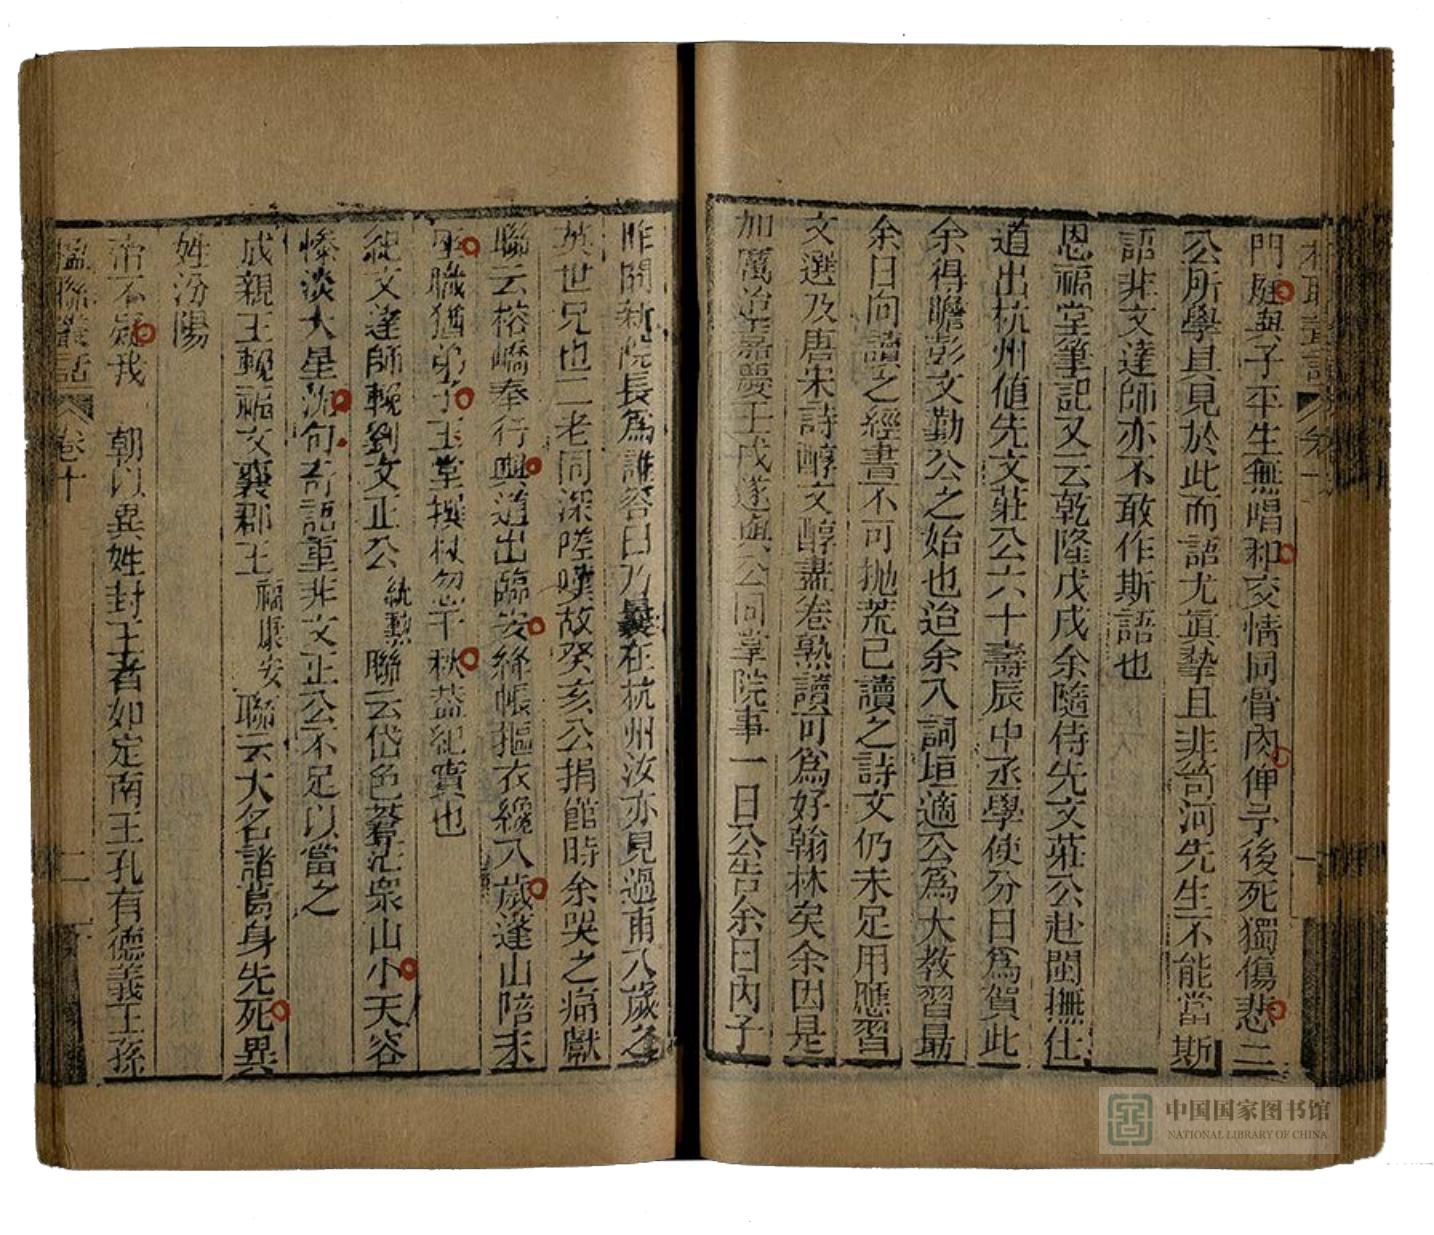 門庭與子平生無唱和交情同骨肉俾予後死獨傷悲二
公所學具見於此而語尤眞摯且非笥河先生不能當斯
語非文達師亦不敢作斯語也
恩福堂筆記又云乾隆戊戌余隨侍先文莊公赴閩撫任
道出杭州値先文莊公六十壽辰中丞學使分日爲賀此
余得瞻彭文勤公之始也迨余入詞垣適公爲大教習最
余日向讀之經書不可抛荒已讀之詩文仍未足用應習
文選及唐宋詩醇文醇盡卷熟讀可爲好翰林矣余因是
加厲洎嘉慶壬戌遂與公同掌院事一日公告余曰內子
昨問新院長爲誰答曰乃曩在杭州汝亦見過甫八歲之
英世兄也二老同深陸嘆故癸亥公捐館時余哭之痛獻
聯云榕嶠奉行輿道出臨安絳帳摳衣纔八歲蓬山陪末
座職猶弟子玉堂撰杖勿千秋蓋紀實也
紀文達師輓劉文正公統勳聯云岱色蒼茫衆山小天容
慘淡大星沈句奇語重非文正公不足以當之
成親王輓福文襄郡王福康安聯云大名諸葛身先死異
姓汾陽
治不疑我 朝以異姓封王者如定南王孔有德義王孫
楹聯叢話 卷十 二
中国国家图书馆
NATIONAL LIBRARY OF CHINA